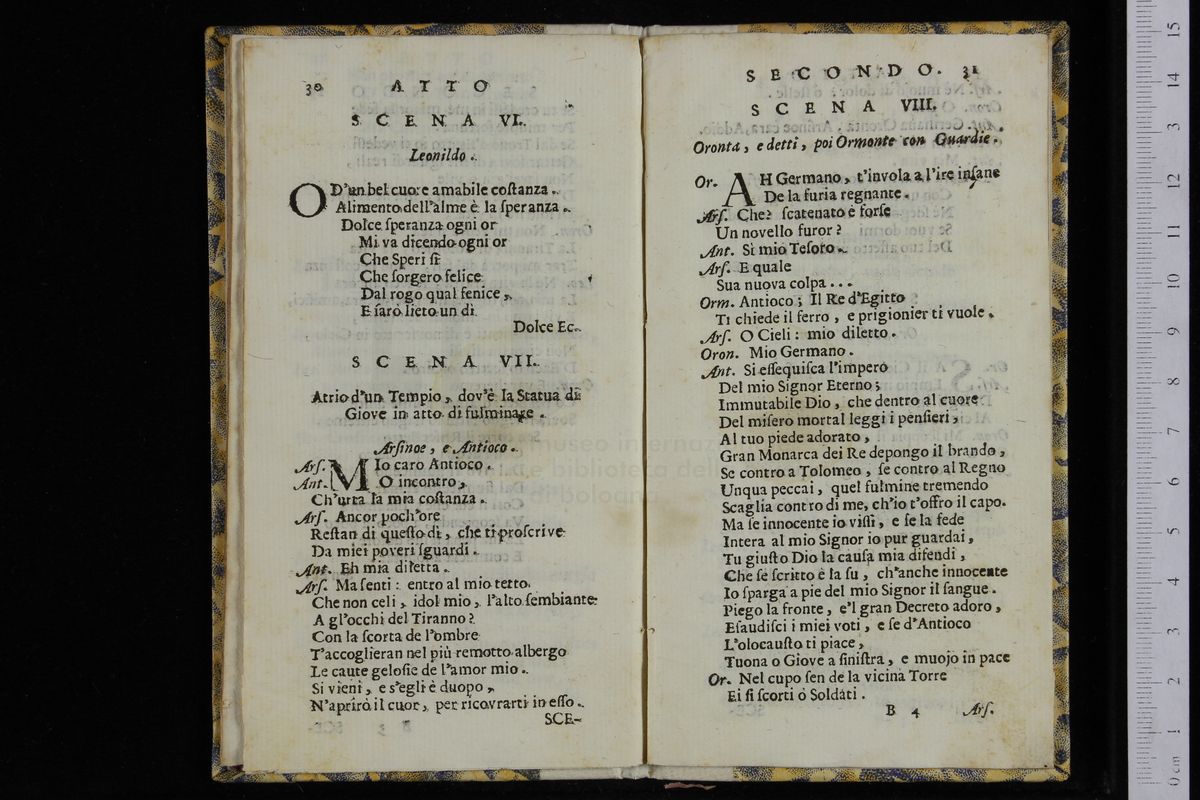 30 ATTO
SCENA VI.
Leonildo.
OD'un bel cuore amabile coſtanza.
Alimento dell'alme è la ſperanza.
Dolce ſperanza ogni or
Mi va dicendo ogni or
Che Speri ſi
Che ſorgero felice
Dal rogo qual fenice,
E ſarò lieto un dì.
Dolce Ec.
SCENA VII.
Atrio d'un Tempio, dov'è la Statua di
Giove in atto di fulminare.
Arſinoe, e Antioco.
Arſ. MIo caro Antioco.
Ant. O incontro,
Ch'urta la mia coſtanza.
Arſ. Ancor poch'ore
Reſtan di queſto dì, che ti proſcrive
Da miei poveri ſguardi.
Ant. Eh mia diletta.
Arſ. Ma ſenti: entro al mio tetto,
Che non celi, idol mio, l'alto ſembiante
A gl'occhi del Tiranno?
Con la ſcorta de l'ombre
T'accoglieran nel più remotto albergo
Le caute geloſie de l'amor mio.
Si vieni, e s'egli è duopo,
N'aprirò il cuor, per ricovrarti in eſſo.
SCE-
SECONDO. 31
SCENA VIII.
Oronta, e detti, poi Ormonte con Guardie.
Or. AH Germano, t'invola a l'ire inſane
De la furia regnante.
Arſ. Che? ſcatenato è forſe
Un novello furor?
Ant. Si mio Teſoro.
Arſ. E quale
Sua nuova colpa...
Orm. Antioco; Il Re d'Egitto
Ti chiede il ferro, e prigionier ti vuole.
Arſ. O Cieli: mio diletto.
Oron. Mio Germano.
Ant. Si eſſequiſca l'impero
Del mio Signor Eterno;
Immutabile Dio, che dentro al cuore
Del miſero mortal leggi i penſieri,
Al tuo piede adorato,
Gran Monarca dei Re depongo il brando,
Se contro a Tolomeo, ſe contro al Regno
Unqua peccai, quel fulmine tremendo
Scaglia contro di me, ch'io t'offro il capo.
Ma ſe innocente io viſſi, e ſe la fede
Intera al mio Signor io pur guardai,
Tu giuſto Dio la cauſa mia difendi,
Che ſe ſcritto è la ſu, ch'anche innocente
Io ſparga a pie del mio Signor il ſangue.
Piego la fronte, e'l gran Decreto adoro,
Eſaudiſci i miei voti, e ſe d'Antioco
L'olocauſto ti piace,
Tuona o Giove a ſiniſtra, e muojo in pace
Or. Nel cupo ſen de la vicina Torre
Ei ſi ſcorti o Soldati.
B 4 Arſ.